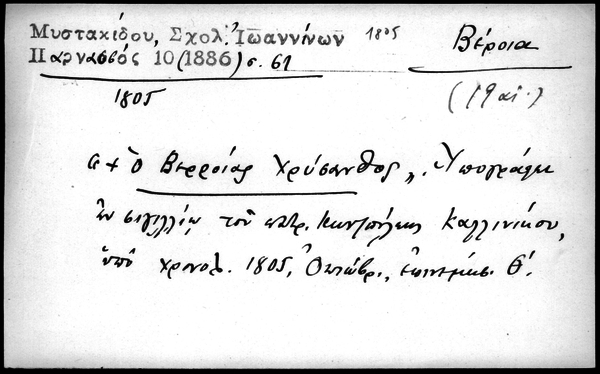 Μυστακίδου, Σχολ. Ἰωαννίνων 1805
Παρνασσός 10 (1886) σ. 61
1805
Βέροια
(19 αἰ.)
"+ ὁ Βερροίας Χρύσανθος". Ὑπογράφει
ἐν σιγιλλίῳ τοῦ πατρ. Κων/πόλεως Καλλινίκου,
ὑπό χρονολ. 1805, Ὀκτώβρ., ἐπινεμήσ. Θ΄.